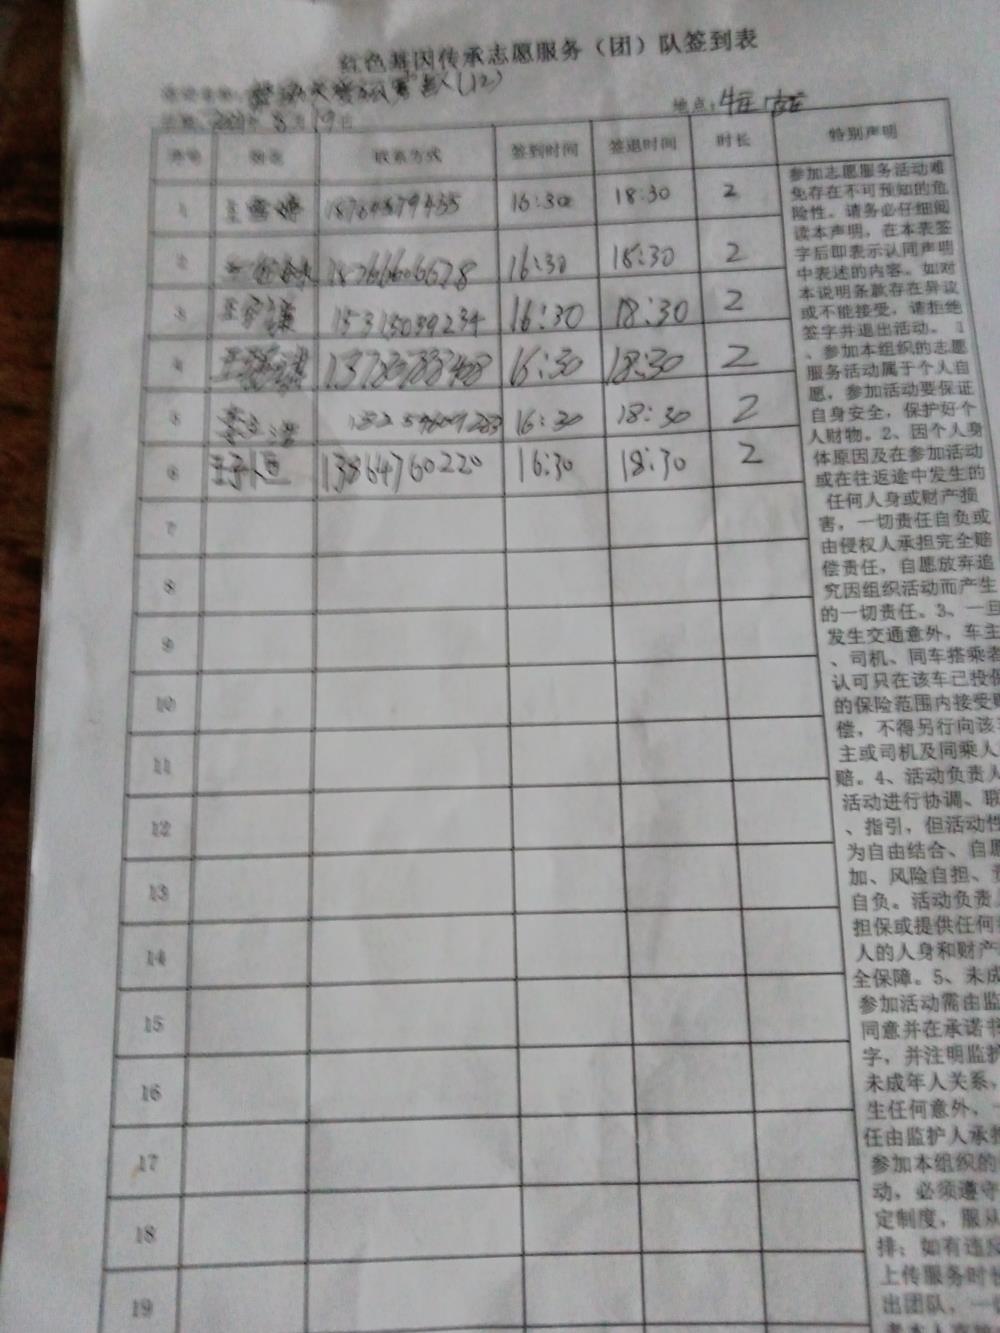 红色基因传承志愿服务（团）队签到表
地点：
8月19日
序号 姓名 联系方式 签到时间 签退时间 时长 特别声明
1 16:30 18:30 2
2 18766606678 16:30 18:30 2
3 15315039234 16:30 18:30 2
4 16:30 18:30 2
5 16:30 18:30 2
6 13864760220 16:30 18:30 2
7
8
9
10
11
12
13
14
15
16
17
18
19
参加志愿服务活动难
免存在不可预知的危
险性。请务必仔细阅
读本声明，在本表签
字后即表示认同声明
中表述的内容。如对
本说明条款存在异议
或不能接受，请拒绝
签字并退出活动。 1
、参加本组织的志愿
服务活动属于个人自
愿，参加活动要保证
自身安全，保护好个
人财物。2、因个人身
体原因及在参加活动
或在往返途中发生的
任何人身或财产损
害，一切责任自负或
由侵权人承担完全赔
偿责任，自愿放弃追
究因组织活动而产生
的一切责任。3、一旦
发生交通意外，车主
、司机、同车搭乘者
认可只在该车已投保
的保险范围内接受赔
偿，不得另行向该车
主或司机及同乘人
赔。4、活动负责人
活动进行协调、联
、指引，但活动性
为自由结合、自愿
加、风险自担、责
自负。活动负责人
担保或提供任何
人的人身和财产
全保障。5、未成
参加活动需由监
同意并在承诺书
字，并注明监护
未成年人关系，
生任何意外，一
任由监护人承担
参加本组织的
动，必须遵守
定制度，服从
排；如有违反
上传服务时长
出团队，一